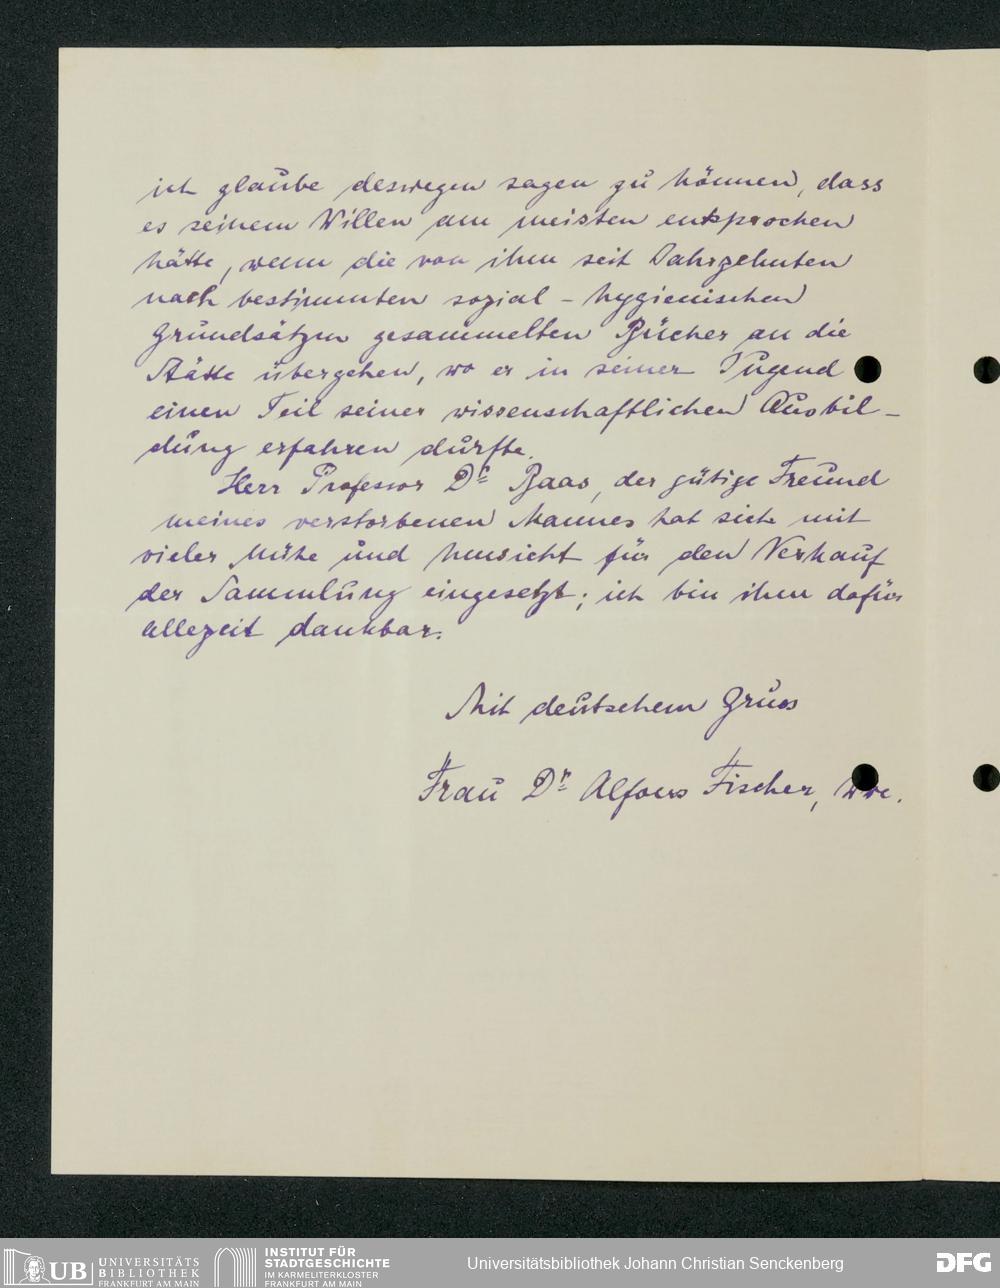 ich glaube deswegen sagen zu können, dass
es seinem Willen am meisten entsprochen
hätte, wenn die von ihm seit Jahrzehnten
nach bestimmten sozial - hygienischen
Grundsätzen gesammelten Bücher an die
Stätte übergehen, wo er in seiner Jugend
einen Teil seiner wissenschaftlichen Ausbil-
dung erfahren durfte.
Herr Professor Dr. Baas, der gütige Freund
meines verstorbenen Mannes hat sich mit
vieler Mühe und Umsicht für den Verkauf
der Sammlung eingesetzt; ich bin ihm dafür
allezeit dankbar.
Mit deutschem Gruss
Frau Dr. Alfons Fischer, Wwe.
UB UNIVERSITÄTS
BIBLIOTHEK
FRANKFURT AM MAIN
INSTITUT FÜR
STADTGESCHICHTE
IM KARMELITERKLOSTER
FRANKFURT AM MAIN
Universitätsbibliothek Johann Christian Senckenberg
DFG